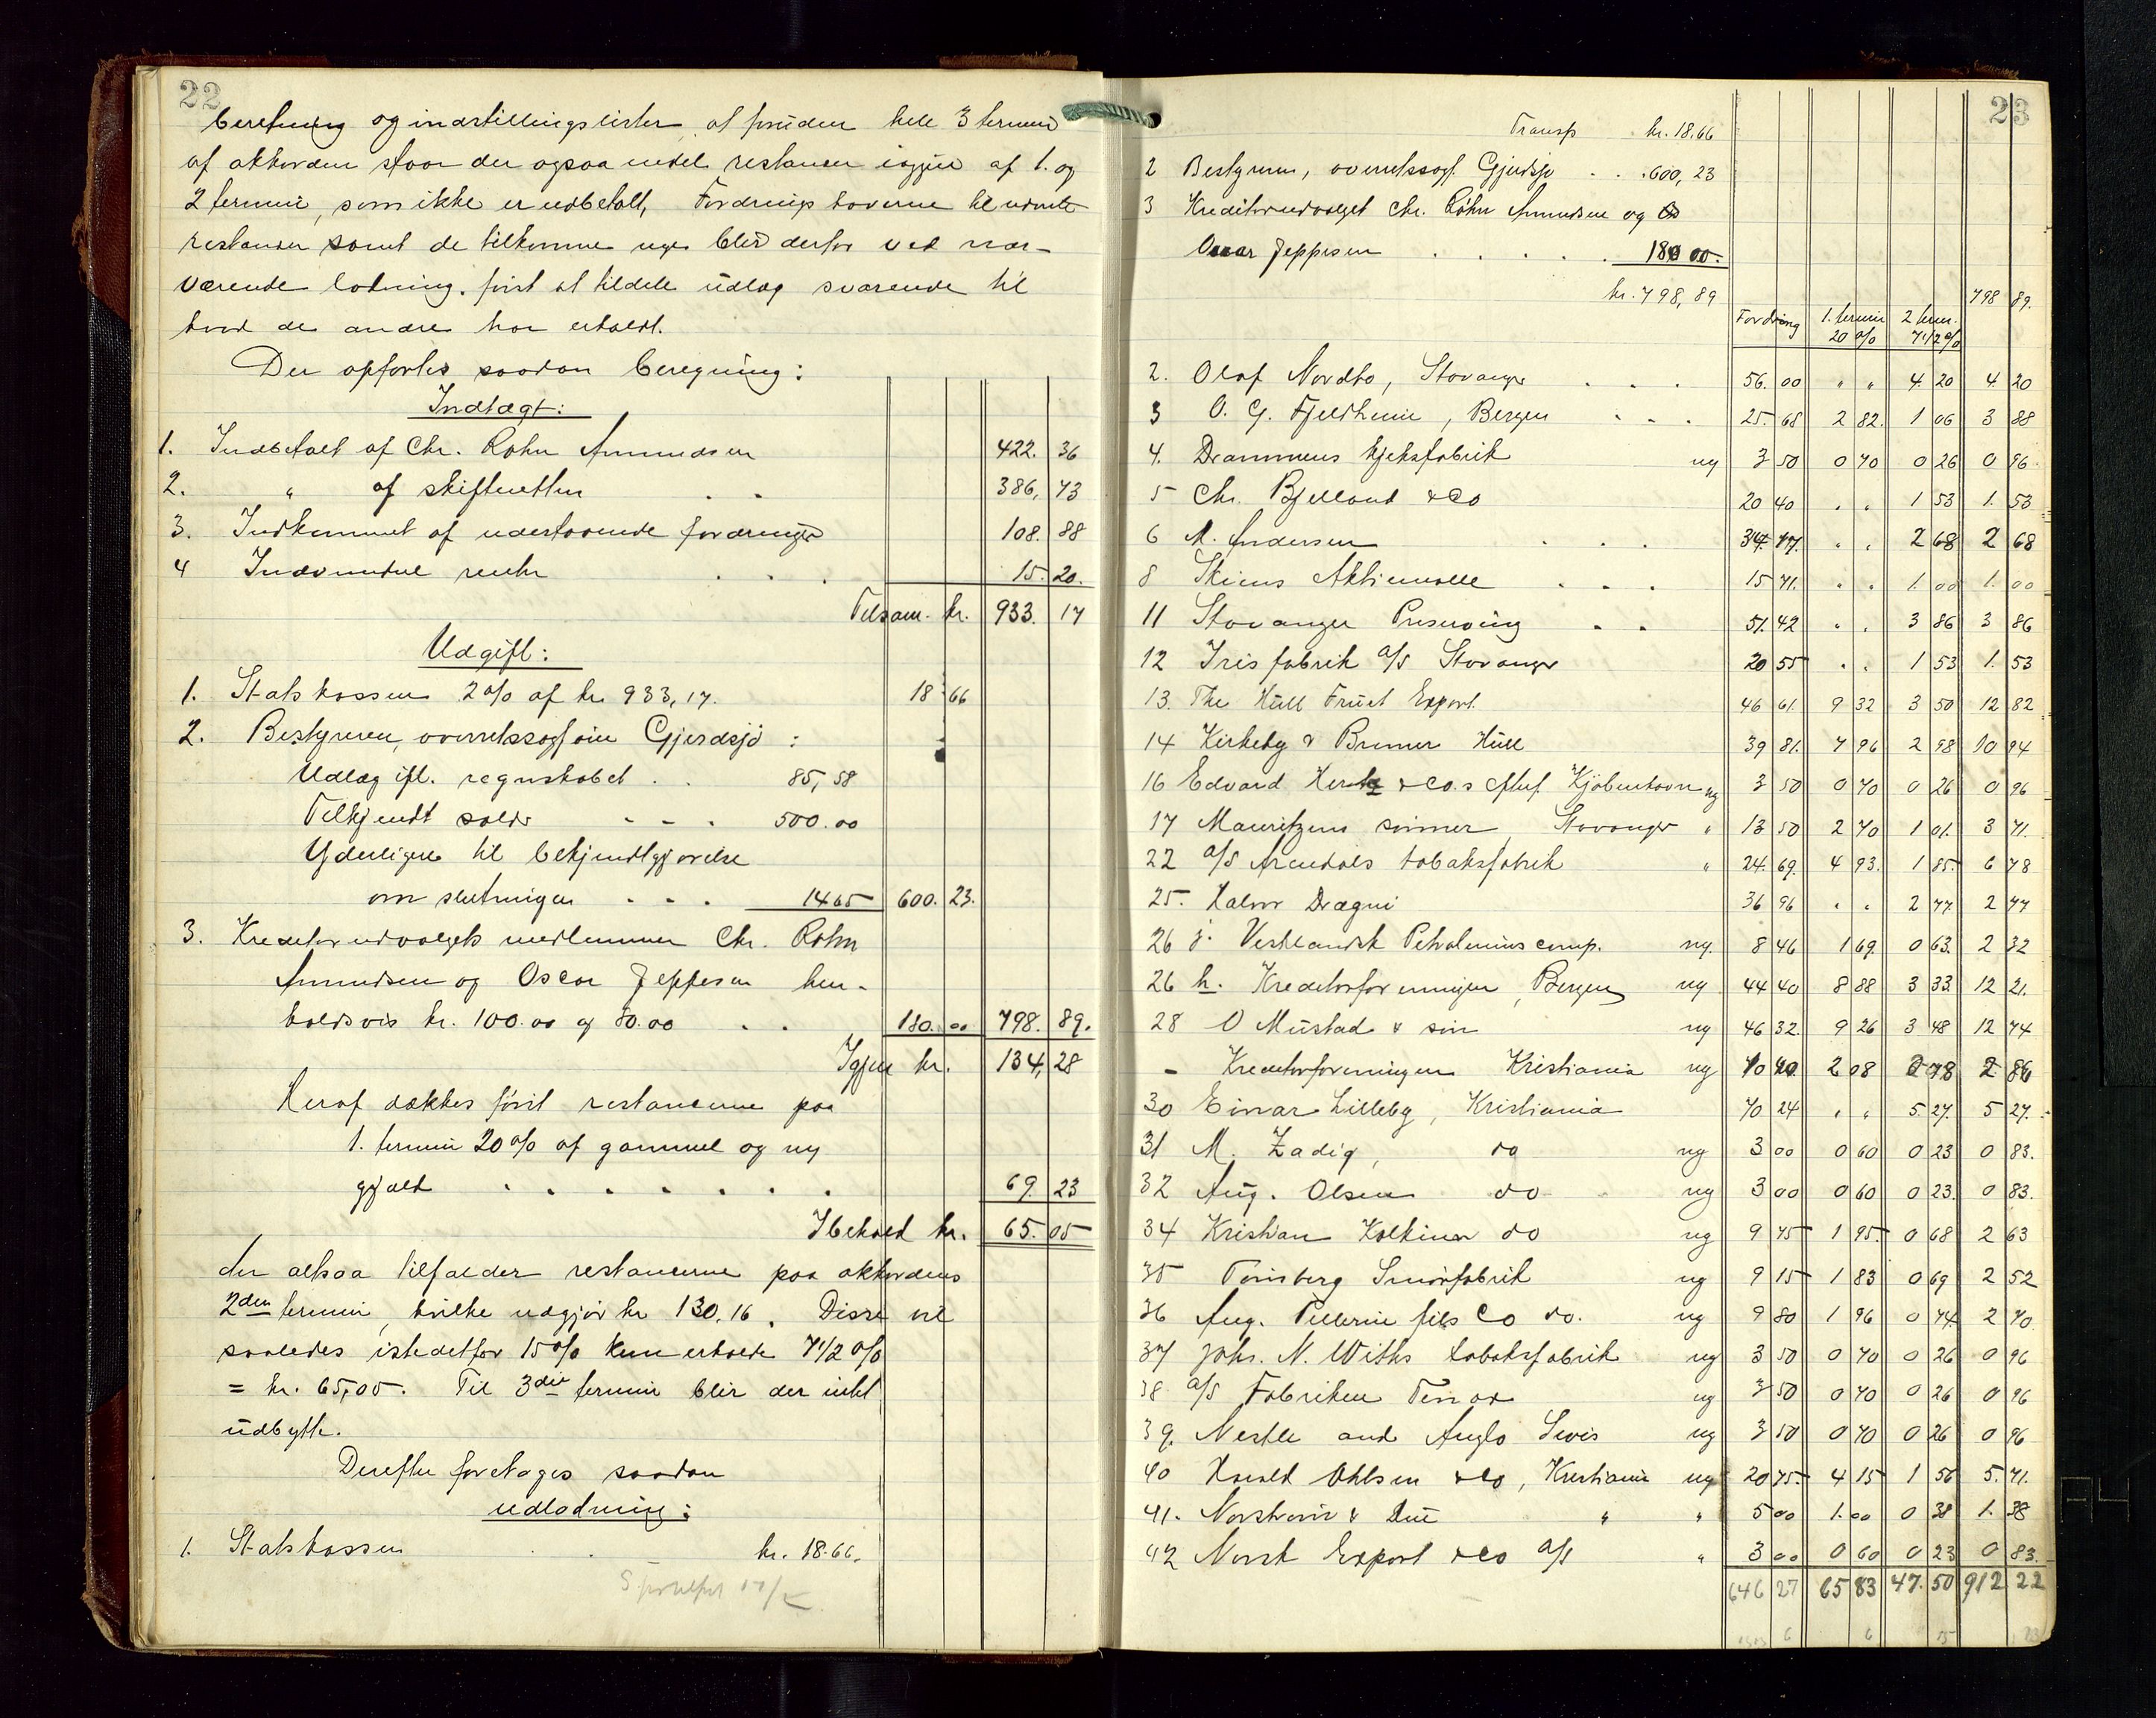 22
beretning og indstillingslister at foruden hele 3 termin
af akkorden staar der ogsaa endel restancer igjen af 1. og
2 termin, som ikke er udbetalt. Fordringshaverne til nævnte
restancer samt de tilkomne nye blir derfor ved nær-
værende lodning først at tildele udlæg svarende til
hvad de andre har erholdt.
Der opførtes saadan beregning:
Indtægt:
1. Indbetalt af Chr. Røhn Amundsen 422. 36
2. " af skifteretten . . 386, 73
3. Indkommet af udestaaende fordringer 108. 88
4 Indvundne renter . . . 15. 20.
Tilsam. kr. 933. 17
Udgift:
1. Statskassen 2% af kr. 933,17. 18 66
2. Bestyreren, overretssagfører Gjerdsjø :
Udlæg ifl. regnskabet . . 85,58
Tilkjendt salær - - . 500.00
Yderligere til bekjendtgjørelse
om slutningen - - . 14 65 600. 23.
3. Kreditorudvalgets medlemmer Chr. Røhn
Amundsen og Oscar Jeppesen hen-
holdsvis kr. 100.00 og 80.00 . . 180. 00 798. 89.
Igjen kr. 134, 28
Heraf dækkes først restancerne paa
1. termin 20% af gammel og ny
gjæld . . . . . . . 69. 23
Ibehold kr. 65. 05
der altsaa tilfalder restancerne paa akkordens
2den termin, hvilke udgjør kr 130.16. Disse vil
saaledes istedetfor 15% kun erholde 7 1/2 %
= kr. 65,05. Til 3die termin blir der intet
udbytte.
Derefter foretages saadan
udlodning:
1. Statskassen . kr. 18.66.
23
Transp kr. 18.66
2 Bestyreren, overretssagf. Gjerdsjø . . . 600,23
3 Kreditorudvalget Chr. Røhn Amundsen og
Oscar Jeppesen . . . . . 180 00.
kr. 798,89 798 89.
Fordring 1. termin 20 % 2 term. 7 1/2 %
2. Olaf Nordbø, Stavanger . . . 56. 00 " " 4. 20 4. 20
3 O. G. Fjeldheim, Bergen . - . 25. 68 2 82. 1 06 3 88
4. Drammens Kjeksfabrik ny 3 50 0 70 0 26 0 96.
5 Chr. Bjelland & Co 20 40 " " 1 53 1. 53
6 M. Andersen . . . 34. 77. " " 2 68 2 68
8 Skiens Aktiemølle . . . 15 71. " " 1. 00 1. 00
11 Stavanger Preserving . . 51. 42 " " 3 86 3 86
12 Iris fabrik A/S Stavanger 20 55 " " 1 53 1. 53
13. The Hull Fruit Export. 46 61. 9 32 3 50 12 82
14 Kirkeby & Brunner Hull 39 81. 7 96 2 98 10 94
16 Edvard & Co.s eftf. Kjøbenhavn ny 3 50 0 70 0 26 0 96
17 Mauritzens sønner, Stavanger " 13 50 2 70 1 01. 3 71.
22 A/S Arendals tobaksfabrik " 24. 69. 4 93. 1 85. 6 78
25. Halvor Drægni 36 96 " " 2 77 2 77
26 j. Vestlandsk Petroleums comp. ny. 8 46 1 69. 0 63. 2 32
26 h. Kreditorforeningen, Bergen ny 44 40 8 88 3 33. 12 21.
28 O Mustad & søn ny 46 32. 9 26 3 48 12 74
- Kreditorforeningen Kristiania ny 10 40. 2 08 0 78 2 86
30 Einar Lilleby, Kristiania 70 24 " " 5. 27. 5 27.
31 M. Zadig, do ny 3 00 0 60 0 23 0 83.
32 Aug. Olsen do ny 3 00 0 60 0 23. 0 83.
34 Kristian do ny 9 75 1 95. 0 68 2 63
35 Tønsberg Smørfabrik ny 9 15 1 83 0 69 2 52
36 Aug. Pellerin fils Co do. ny 9 80 1 96 0 74. 2 70
37 Johs. N. Withs tobaksfabrik ny 3 50 0 70 0 26 0 96
38. A/S Fabriken ny 3 50 0 70 0 26 0 96
39. Nestle and Anglo Swis ny 3 50 0 70 0 26 0 96
40 Harald Ohlsen & Co, Kristiania ny 20 75. 4 15 1 56 5. 71.
41. Norstrøm & Due " " 5 00 1. 00 0 38 1. 38
42 Norsk Export & Co A/S " 3 00 0 60 0 23 0 83.
646 27 65 83 47. 50 912 22